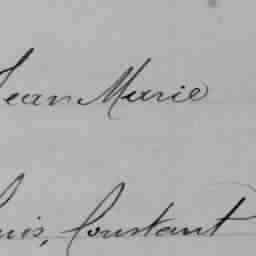 Jean Marie
Louis, Constant